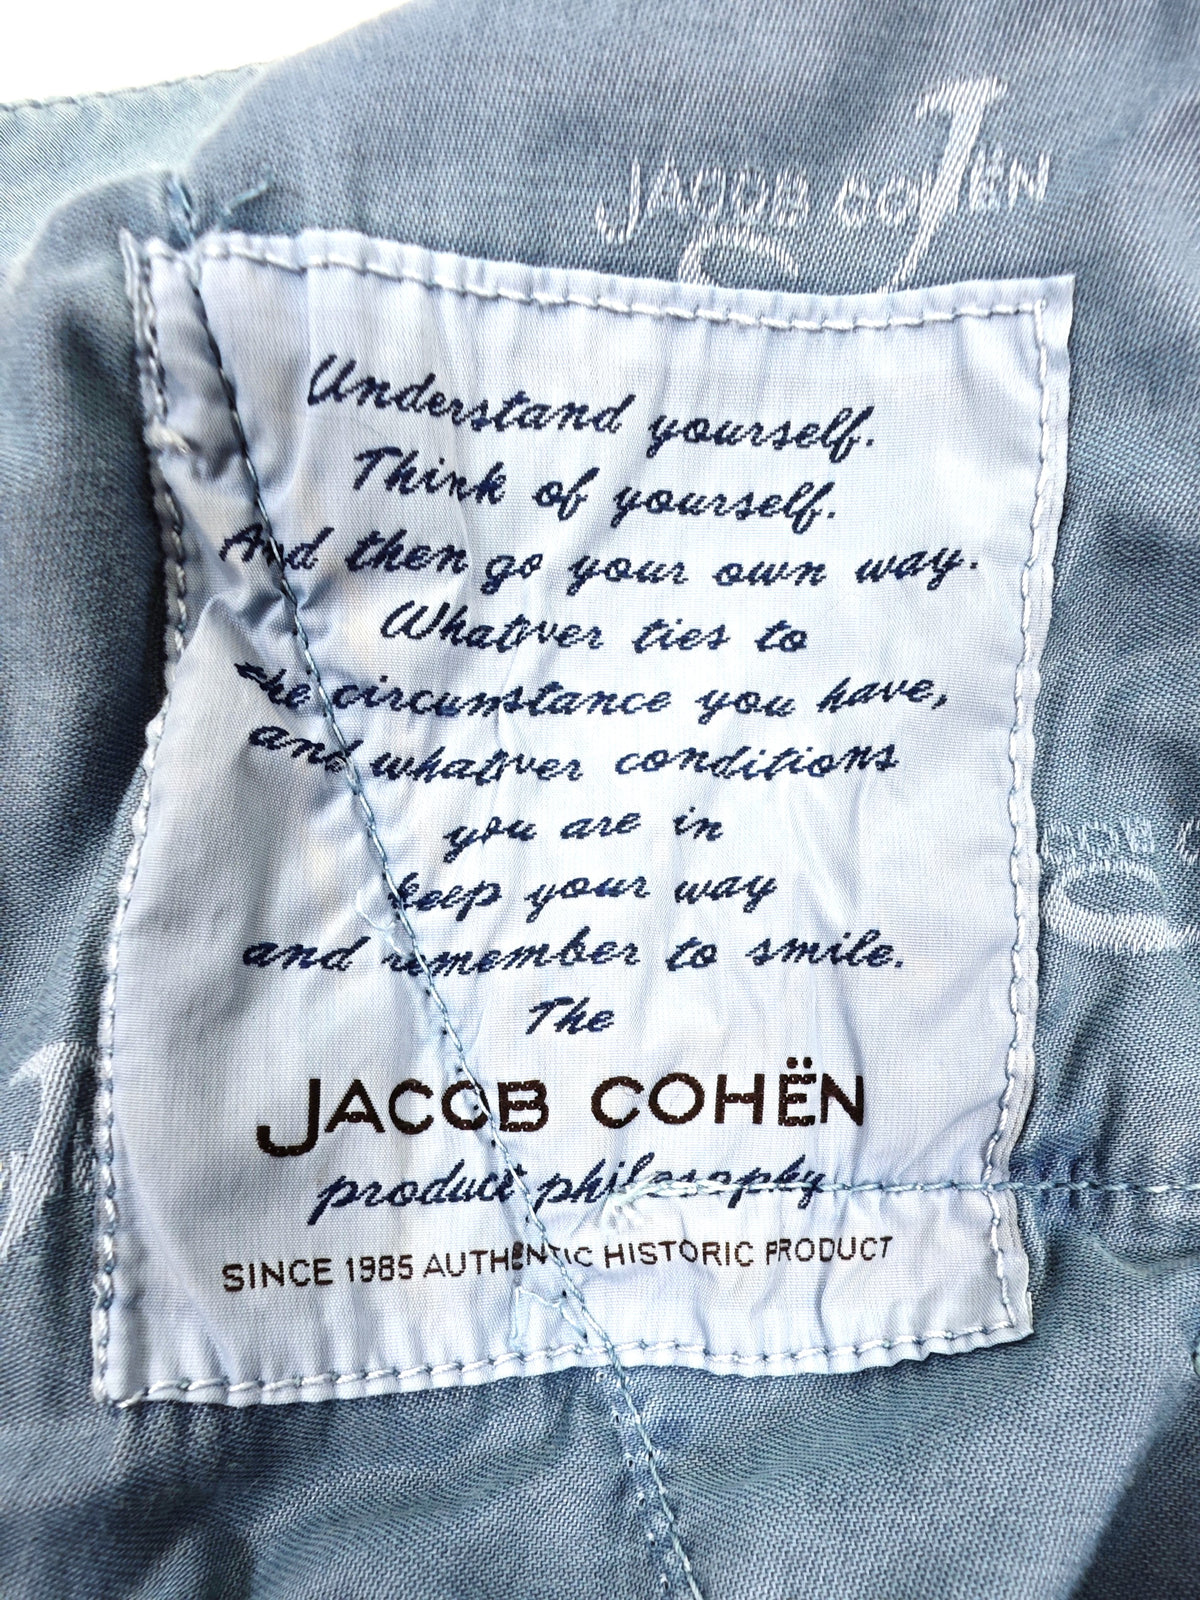 JACOB COHËN
J
Understand yourself.
Think of yourself.
And then go your own way.
Whatever ties to
the circumstance you have,
and whatver conditions
you are in
keep your way
and remember to smile.
The
JACOB COHËN
product philosophy
SINCE 1985 AUTHENTIC HISTORIC PRODUCT